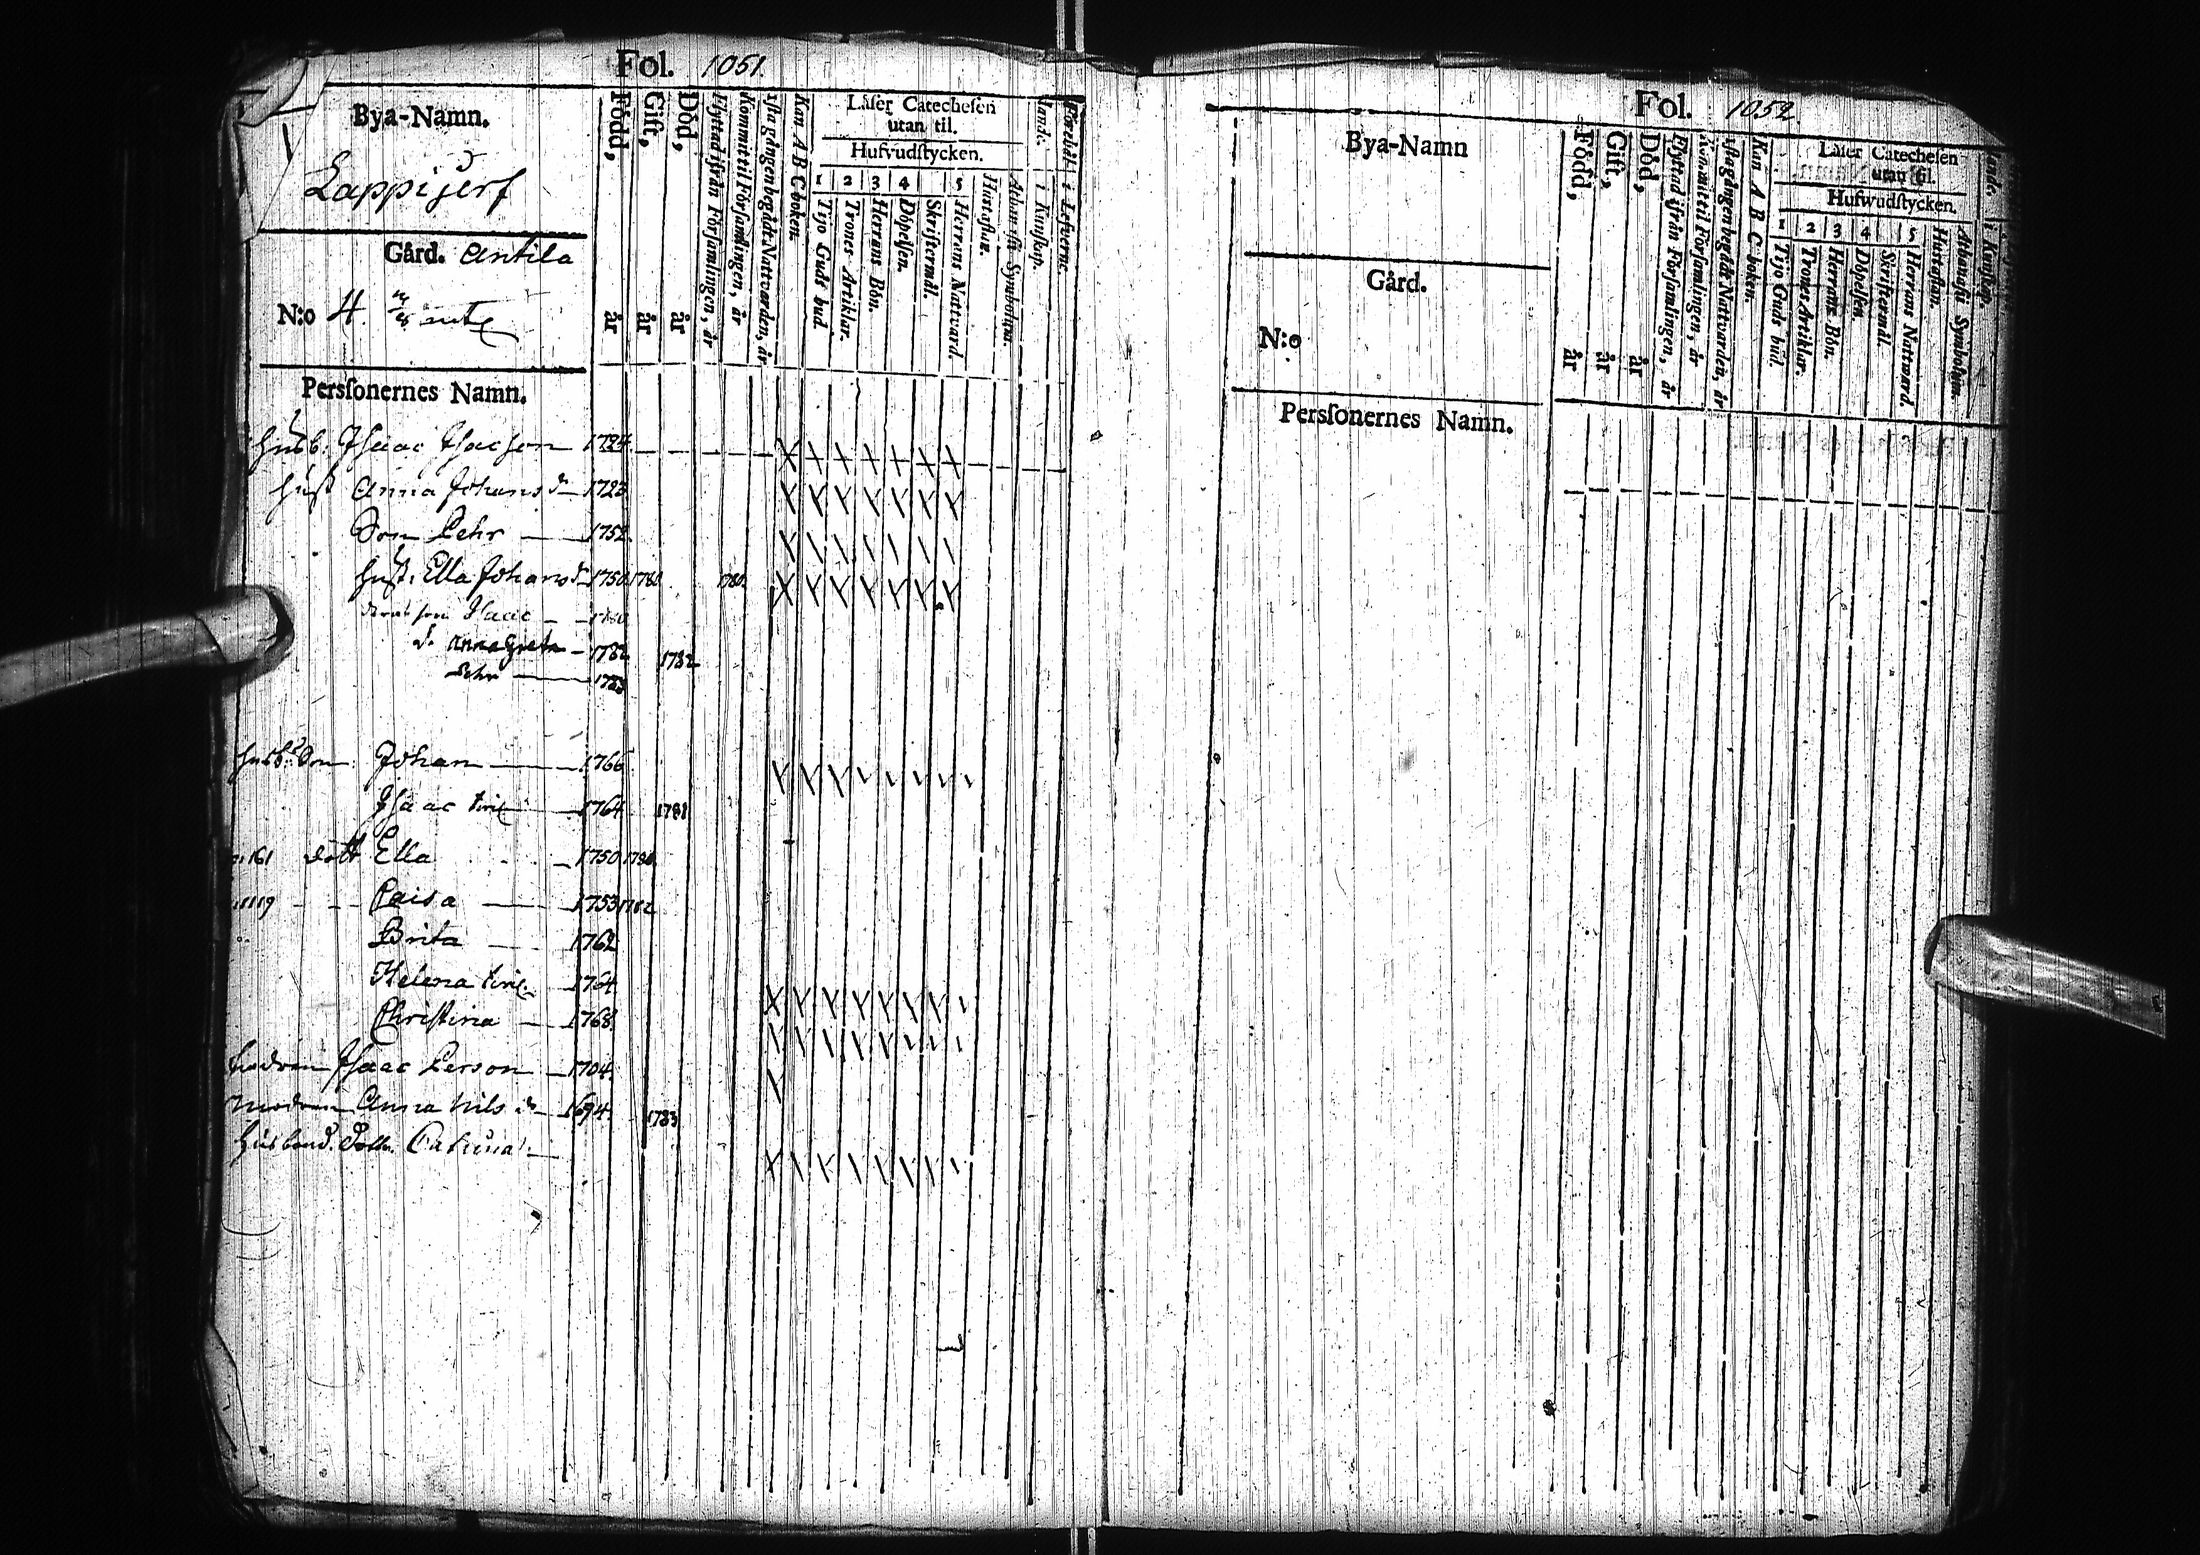 Fol. 1051.
Bya-Namn.
Lappijerf
Gård. Antila
N:o 4.
Persſonernes Namn.
Född, år
Gift, år
Död, år
Flyttad ifrån Församlingen, år
Kommit til Församlingen, år
1sta gången begådt Nattvarden, år
Kan A B C boken.
Läser Catechesen
utan til.
Hufvudſtycken.
1 2 3 4 5
Tijo Guds bud.
Trones Artiklar.
Herrans Bön.
Döpelſen.
Skriftermål.
Herrans Nattvard
Hustaflan.
Athanasii Symbolum.
i Kunſkap.
i Lefverne.
Husb: Isaac Isacson 1724
Hust Anna Johans d. 1723
Son Pehr 1752
Hust: Ella Johans d. 1750 1780 1780
son Isaac 1780
d. Anna Greta 1782 1782
Pehr 1783
Husb: Son Johan 1766
Isaac 1764 1781
161 dott Ella 1750 1780
1119 Caisa 1753 1782
Brita 1762
Helena 1764
Christina 1768
Isaac Person 1704
Modren Anna Nils d. 1694 1783
Husbond. Dott. Catrina
Fol. 1052.
Bya-Namn
Gård.
N:o
Persſonernes Namn.
Född, år
Gift, år
Död, år
Flyttad ifrån Församlingen, år
Kommit til Församlingen, år
1sta gången begådt Nattvarden, år
Kan A B C boken.
Läſer Catecheſen
utan til.
Hufwudſtycken.
1 2 3 4 5
Tijo Guds bud.
Trones Artiklar.
Herrans Bön.
Döpelſen.
Skriftermål.
Herrans Nattward.
Hustaflan.
Athanaſii Symbolum.
i Kunſkap.